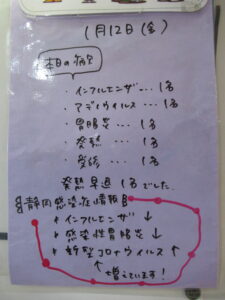 1月12日(金)
本日の病欠
・インフルエンザ…1名
・アデノウイルス…1名
・胃腸炎…1名
・発熱…1名
・受診…1名
発熱早退1名でした。
静岡感染症情報
インフルエンザ↓
感染性胃腸炎↓
新型コロナウイルス↑
↑増えています!